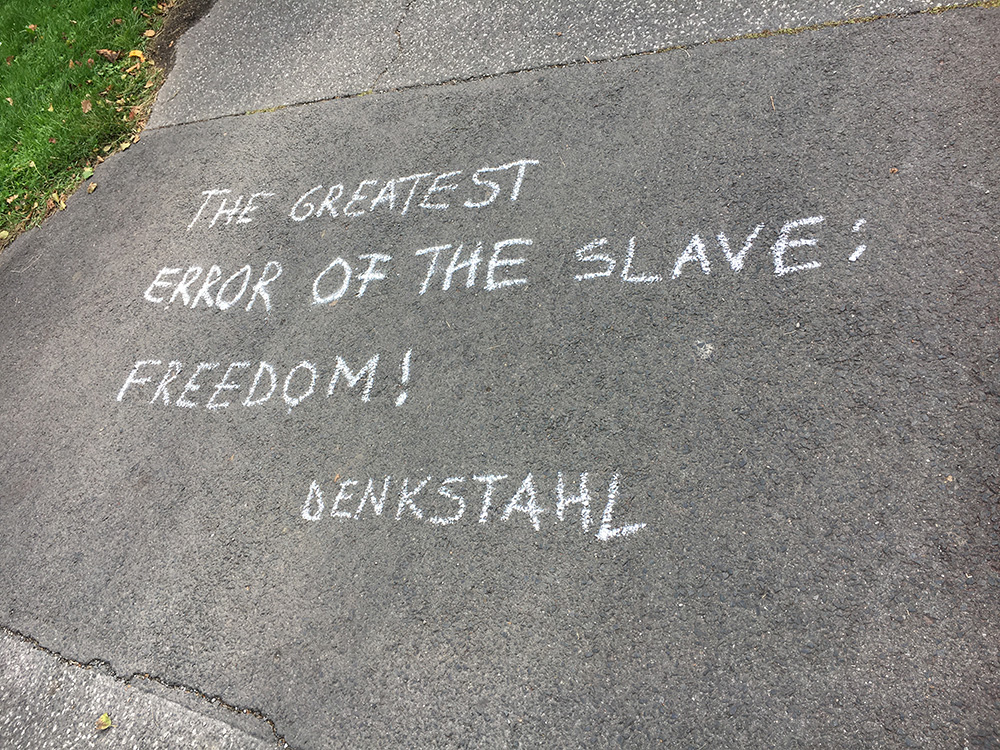 THE GREATEST
ERROR OF THE SLAVE:
FREEDOM!
DENKSTAHL